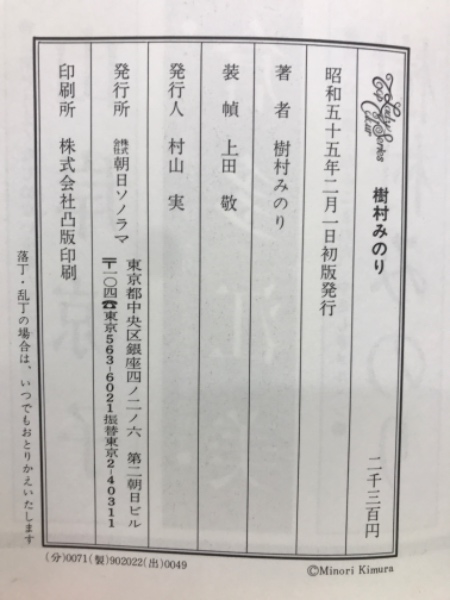 樹村みのり 二千三百円
昭和五十五年二月一日初版発行
著者 樹村みのり
装幀 上田 敬
発行人 村山 実
発行所 株式会社朝日ソノラマ
東京都中央区銀座四ノ二ノ六 第二朝日ビル
〒一〇四☎東京563-6021振替東京2-40311
印刷所 株式会社凸版印刷
落丁・乱丁の場合は、いつでもおとりかえいたします
(分)0071(製)902022(出)0049
©Minori Kimura